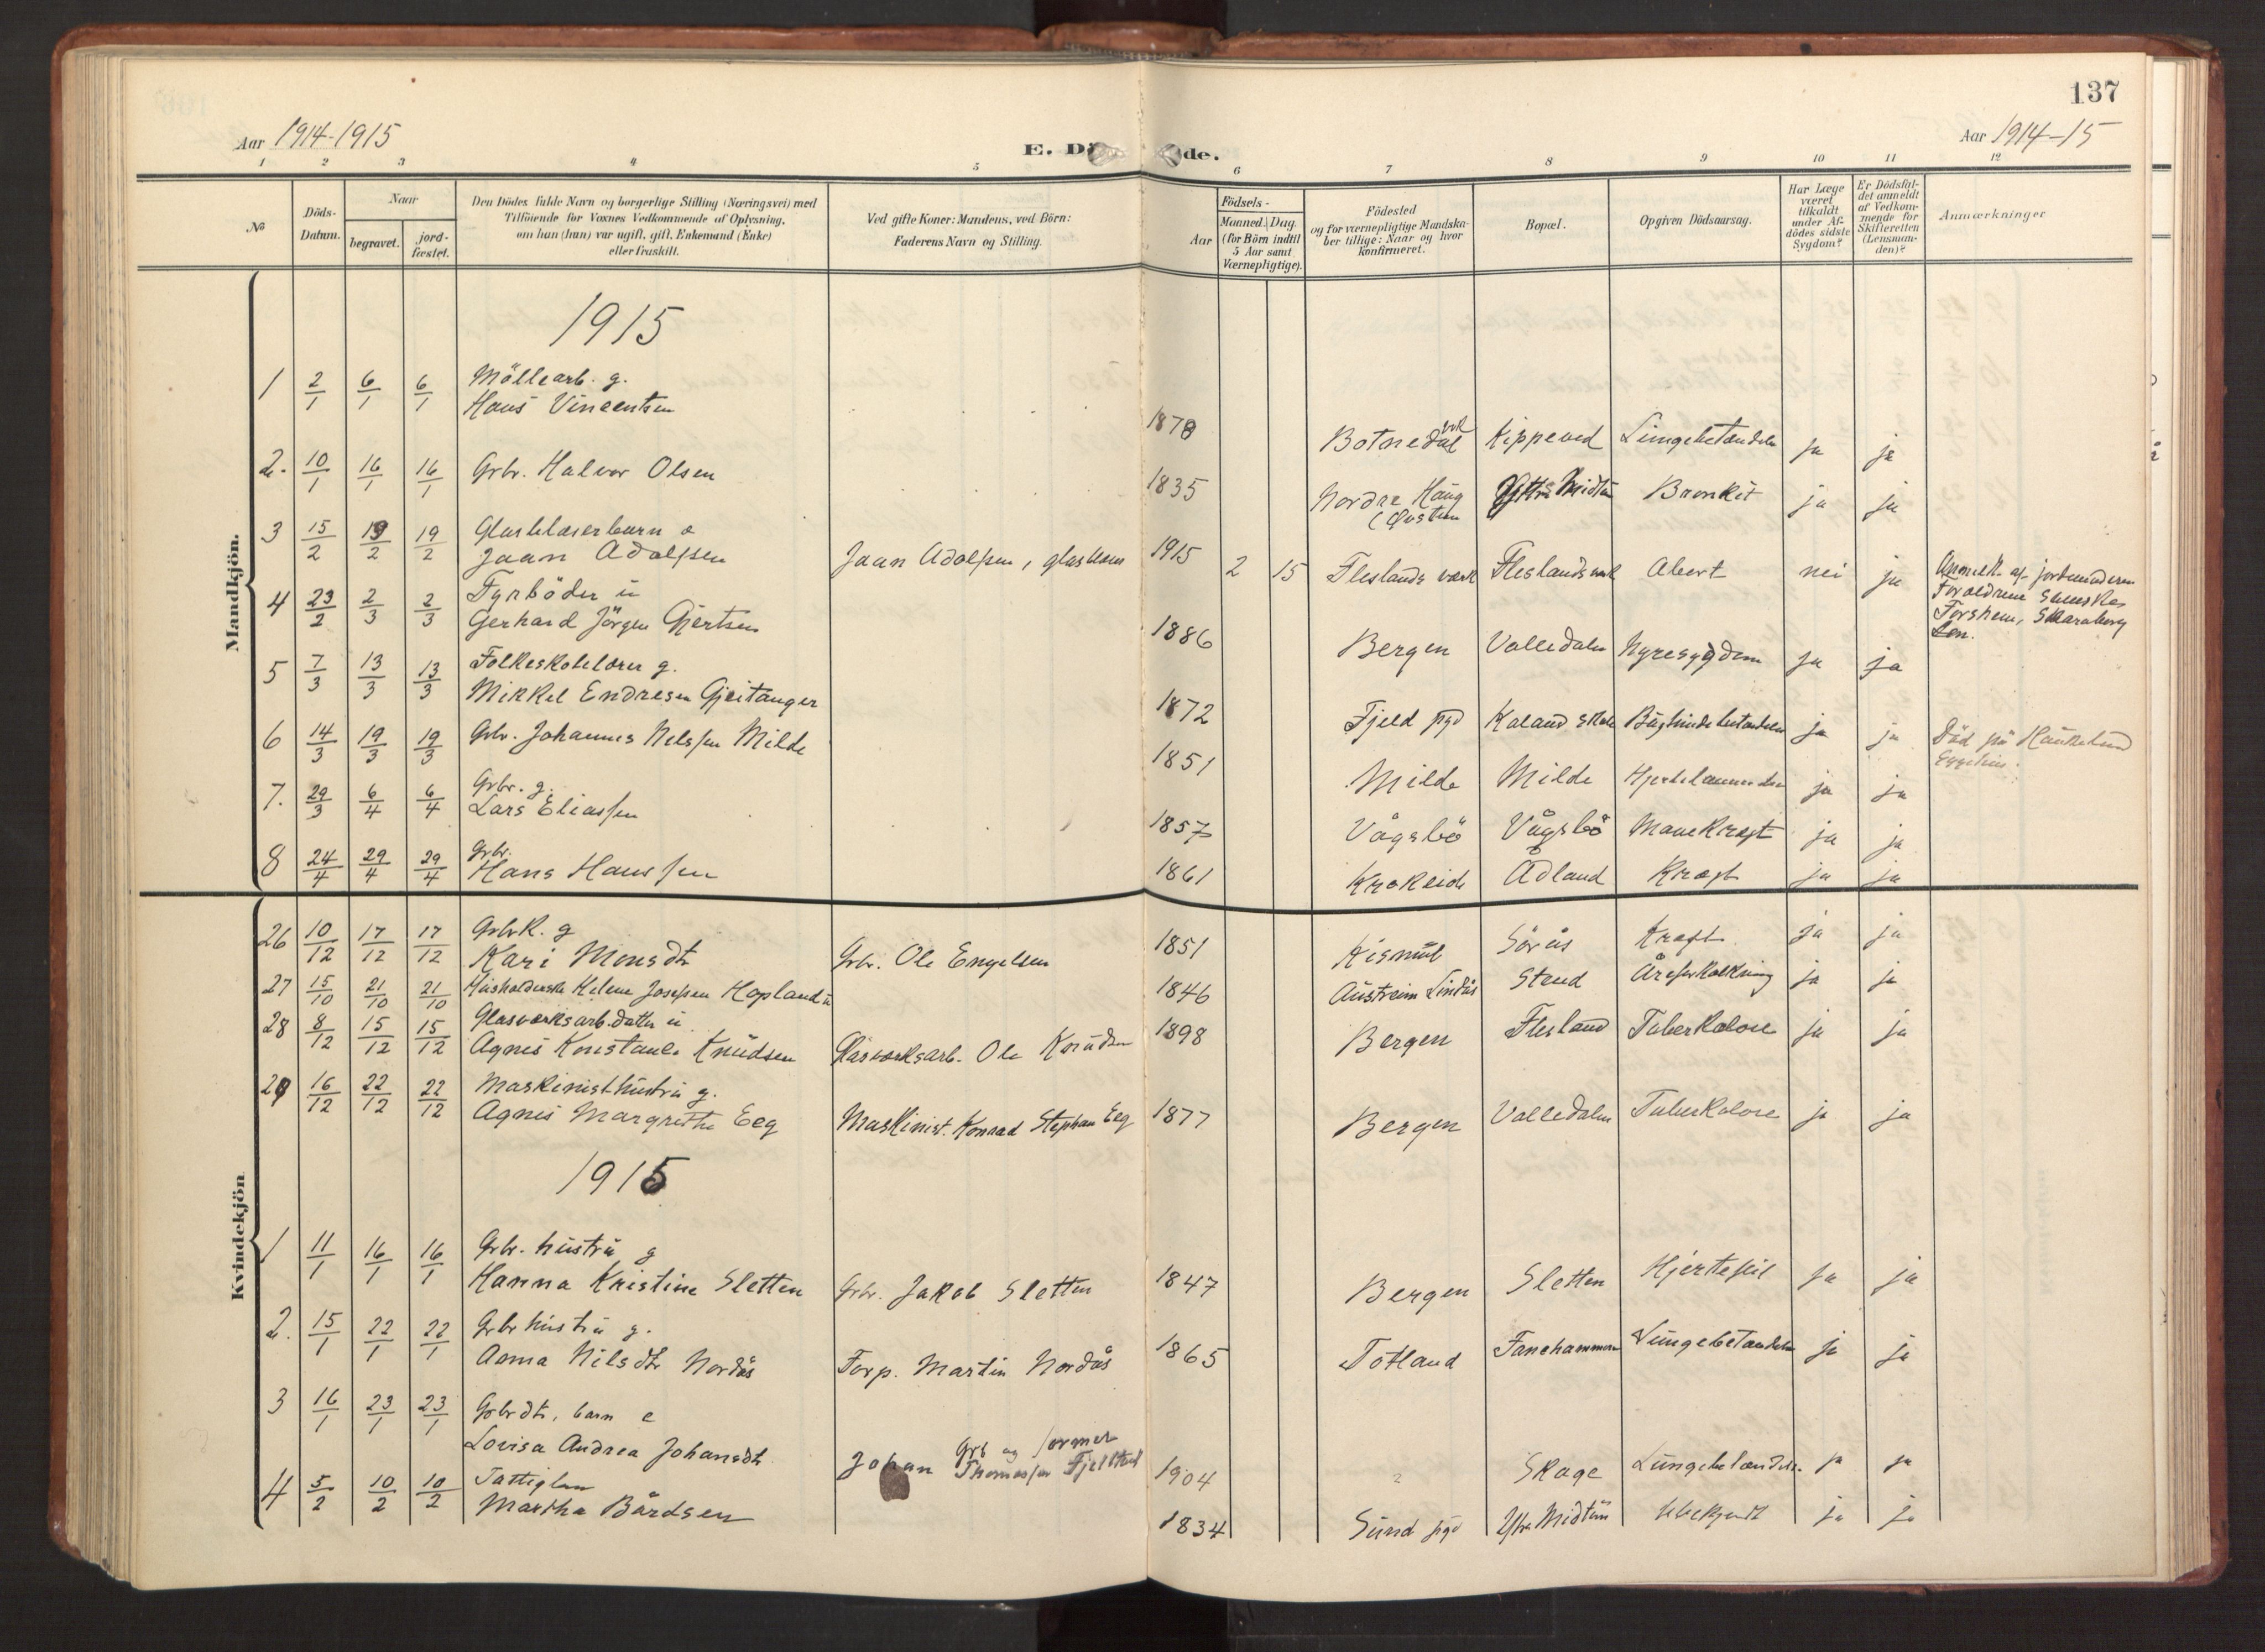 137
Aar 1914-1915
E. Dö de.
Aar 1914-15
1 2 3 4 5 6 7 8 9 10 11 12
№
Döds-Datum.
Naar
begravet.
jord-fæstet.
Den Dödes fulde Navn og borgerlige Stilling (Næringsvei) med
Tilföiende for Voxnes Vedkommende af Oplysning,
om han (hun) var ugift, gift, Enkemand (Enke)
eller fraskilt.
Ved gifte Koner: Mandens, ved Börn:
Faderens Navn og Stilling.
Födsels-
Aar
Maaned. Dag.
(for Börn indtil
5 Aar samt
Værnepligtige).
Födested
og for værnepligtige Mandska-
ber tillige: Naar og hvor
konfirmeret.
Bopæl.
Opgiven Dödsaarsag.
Har Læge
været
tilkaldt
under Af-
dödes sidste
Sygdom?
Er Dödsfal-
det anmeldt
af Vedkom-
mende for
Skifteretten
(Lensman-
den)?
Anmærkninger
Mandkjön.
1915
1 2/1 6/1 6/1 Möllearb. g.
Hans Vincentsen 1878 Botnedal Kippeved Lungebetændelse ja ja
2. 10/1 16/1 16/1 Grbr. Halvor Olsen 1835 Nordre Haug Midtün Bronkit ja ja
3 15/2 19/2 19/2 Glasblæserbarn
Jaan Adolfsen Jaan Adolfsen, glasblæser 1915 2 15 Fleslands værk Fleslandsverk Abort nei ja Anmeldt af jordmoderen
Forældrene Svenske
Forshem, Skaraborg
Len.
4 23/2 2/3 2/3 Fyrböder ü
Gerhard Jörgen Gjertsen 1886 Bergen Valledalen Nyresygdom ja ja
5 7/3 13/3 13/3 Folkeskolelærer g.
Mikkel Endresen Gjeitanger 1872 Fjeld pgd Kaland skole ja ja Död på Haukeland
6 14/3 19/3 19/3 Grbr. Johannes Nelssen Milde 1851 Milde Milde Hjertelammelse ja ja
7. 29/3 6/4 6/4 Grbr. g.
Lars Eliassen 1857 Vågsbö Vågsbö Mavekræft ja ja
8 24/4 29/4 29/4 grbr.
Hans Hanssen 1861 Krokeide Ådland Kræft ja ja
Kvindekjön
26 10/12 17/12 17/12 Grbrk. g
Kari Monsdtr Grbr. Ole Engelsen 1851 Kismül Sörås Kræft ja ja
27 15/10 21/10 21/10 Husholderske Helene Josefsen Hopland ü 1846 Austreim Lindås Stend Åreforkalkning ja ja
28 8/12 15/12 15/12 Glasværksarb.datter ü.
Agnes Konstance Knüdsen Glasværksarb. Ole Knüdsen 1898 Bergen Flesland Tuberkolose ja ja
29 16/12 22/12 22/12 Maskinisthüstrü g.
Agnes Margrethe Eeg Maskinist. Konrad Stephan Eeg 1877 Bergen Valledalen Tuberkolose ja ja
1915
1 11/1 16/1 16/1 Grbr. hüstrü g
Hanna Kristine Sletten Grbr. Jakob Sletten 1847 Bergen Sletten Hjertefeil ja ja
2. 15/1 22/1 22/1 Grbr hüstrü g.
Anna Nilsdtr Nordås Forp. Martin Nordås 1865 Totland Fanehammeren Lungebetændelse ja ja
3 16/1 23/1 23/1 Grbr dtr, barn e
Lovisa Andrea Johansdtr Johan Grb og former
Thomassen Fjeldstad 1904 ? Skage Lungebetændelse. ja ja
4 5/2 10/2 10/2 Fattiglem
Martha Bårdsen 1834 Sünd pgd Ytre Midtün Ubekjendt ja ja